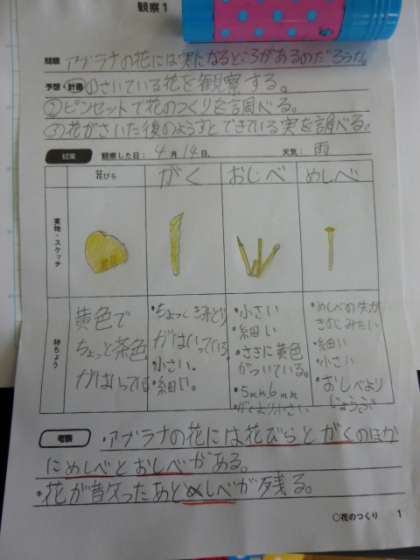 観察1
問題 アブラナの花には実になるところがあるのだろうか。
予想・計画 ①のさいている花を観察する。
②ピンセットで花のつくりを調べる。
③花がさいた後のようすとできている実を調べる。
結果 観察した日:4月14日 天気:雨
花びら がく おしべ めしべ
実物・スケッチ
特ちょう
黄色で
ちょっと茶色
がはいってる
・ちょっときみどり
がはいっている
・小さい
・細い。
・小さい
・細い
・さきに黄色
がついている。
・5mm6mm
・がくより小さい
・めしべの先が
きのこみたい
・細い
・小さい
・おしべより
じょうぶ
考察 ・アブラナの花には花びらとがくのほか
にめしべとおしべがある。
・花が散ったあとめしべが残る。
○花のつくり 1